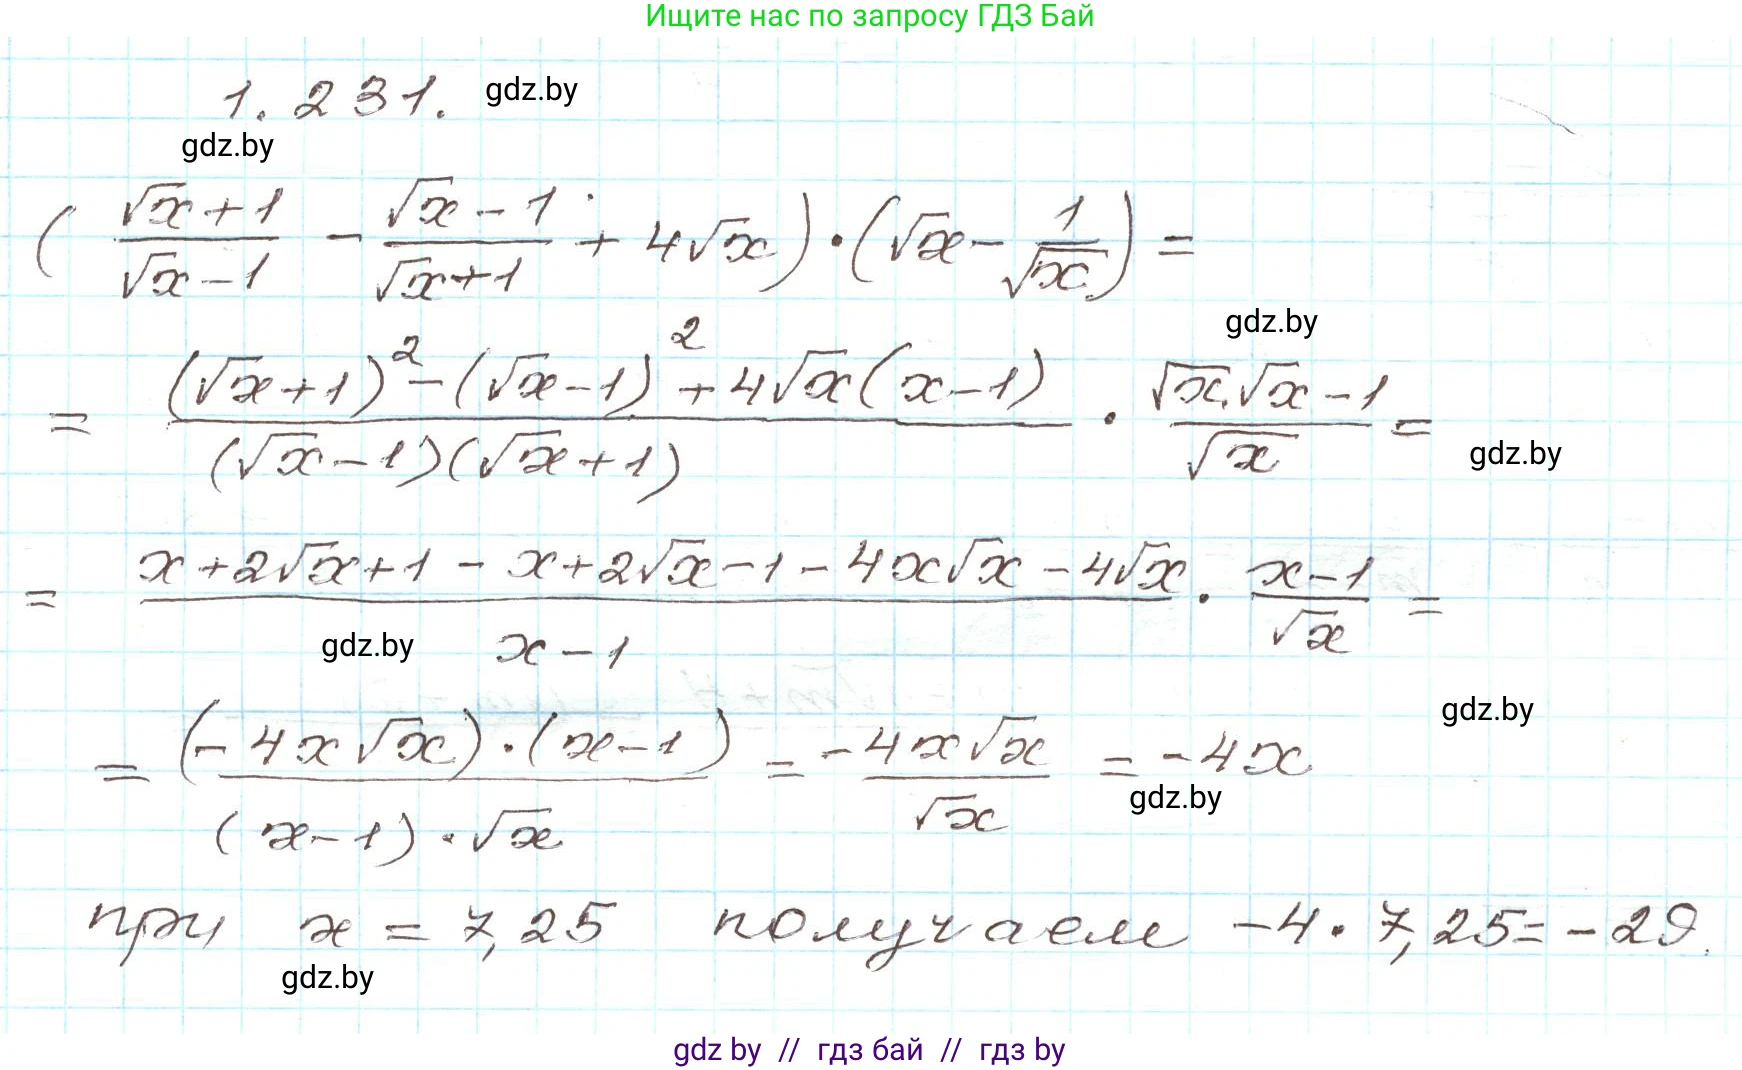 Ищите нас по запросу ГДЗ Бай
1.231. gdz.by
gdz.by
( (√x+1)/(√x-1) - (√x-1)/(√x+1) + 4√x ) · ( √x - 1/√x ) =
gdz.by
= ((√x+1)² - (√x-1)² + 4√x(x-1))/((√x-1)(√x+1)) · (√x·√x-1)/√x =
gdz.by
= (x+2√x+1 - x+2√x-1 - 4x√x - 4√x)/(x-1) · (x-1)/√x =
gdz.by
gdz.by
= ((-4x√x)·(x-1))/((x-1)·√x) = (-4x√x)/√x = -4x
gdz.by
при x = 7,25 получаем -4 · 7,25 = -29.
gdz.by
gdz by // гдз бай // гдз by